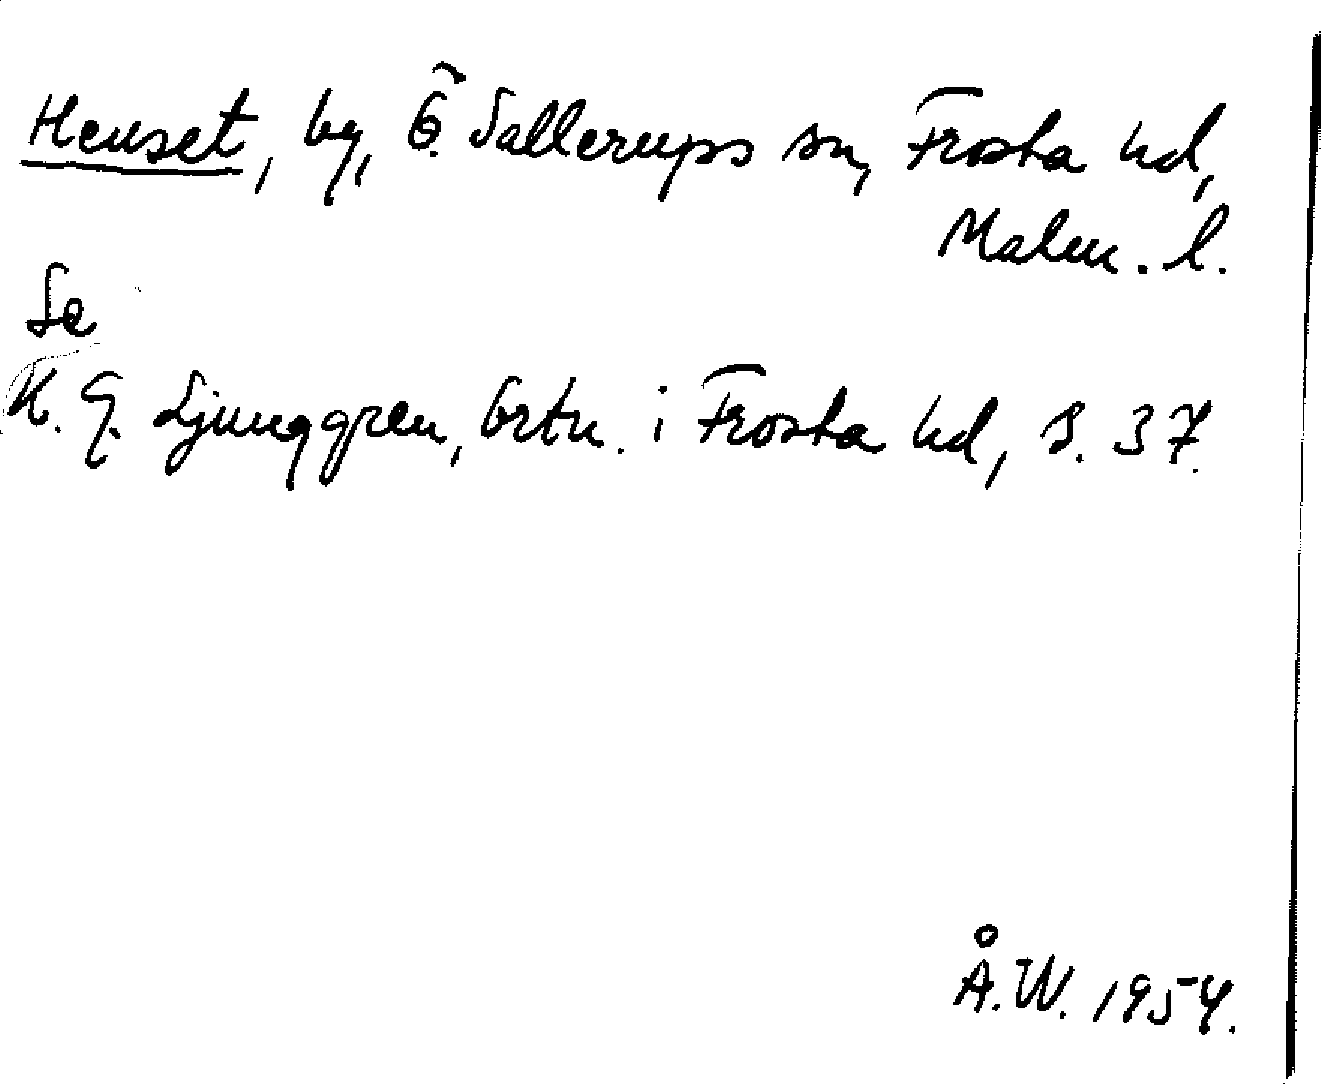 Henset, by, Ö. Sallerups sn, Frosta hd,
Malm. l.
Se
K. G. Ljunggren, Ortn. i Frosta hd, s. 37.
Å. W. 1954.